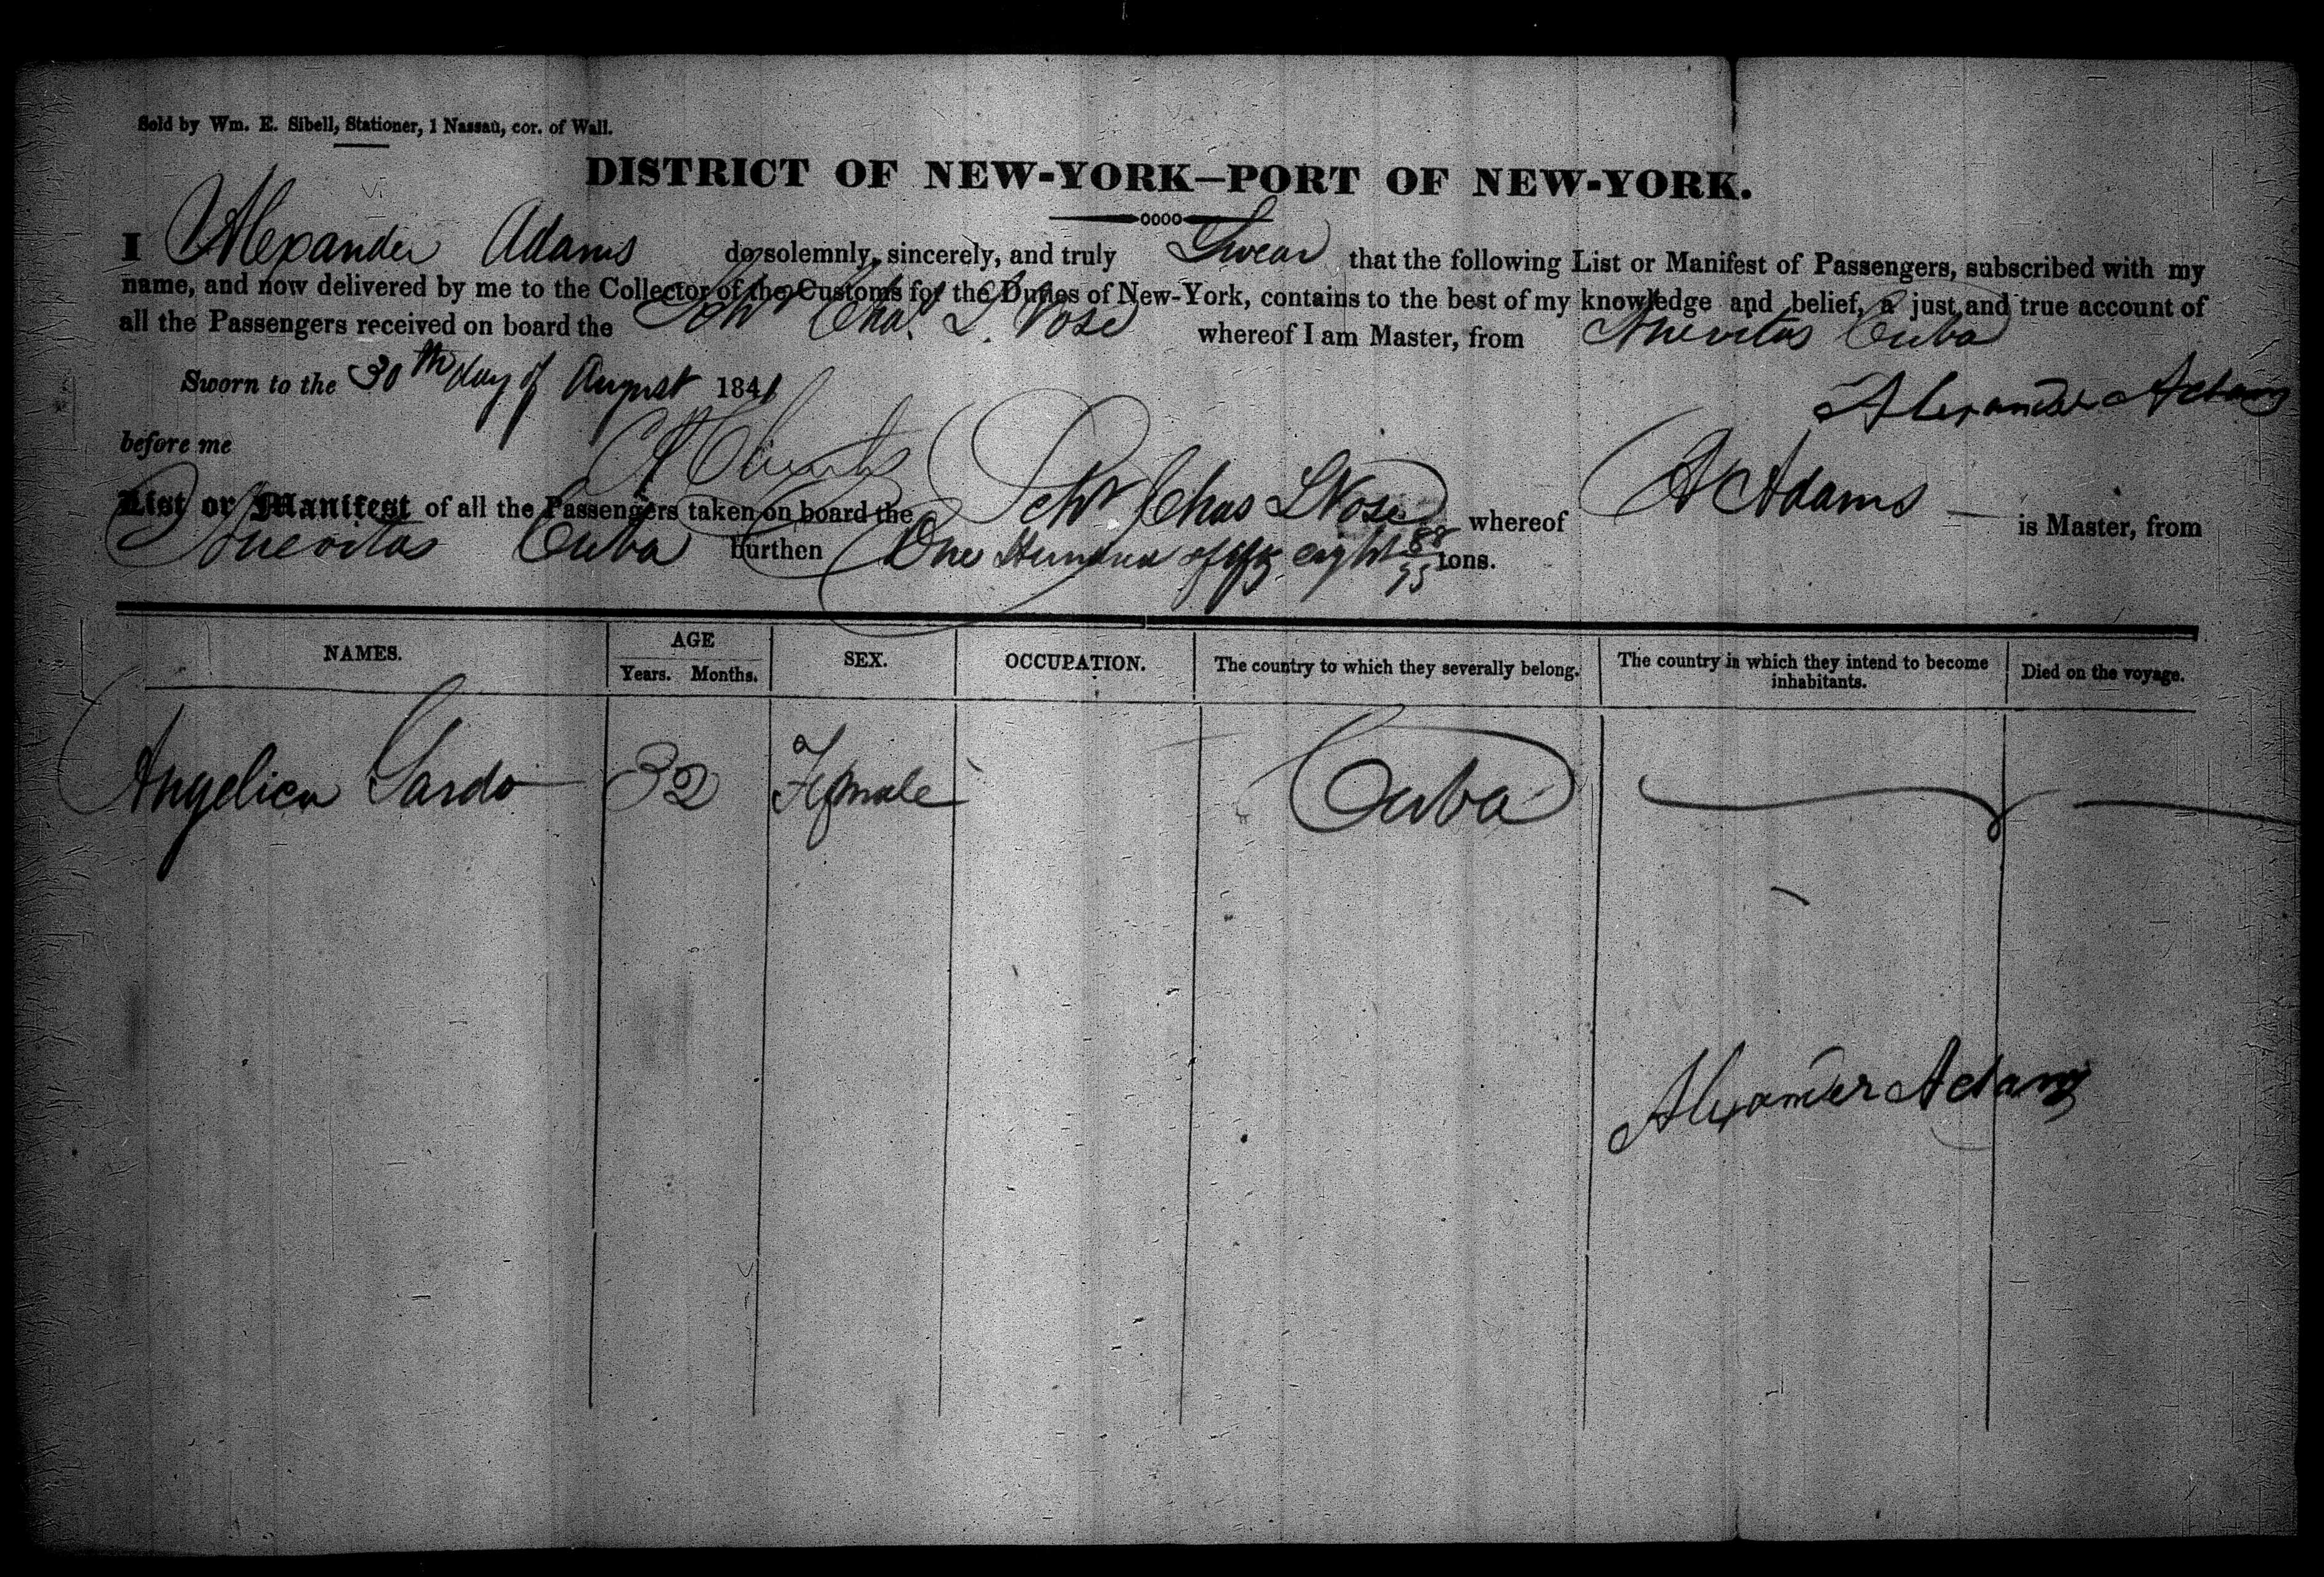 Sold by Wm. E. Sibell, Stationer, 1 Nassau, cor. of Wall.
DISTRICT OF NEW-YORK—PORT OF NEW-YORK.
I Alexander Adams do solemnly, sincerely, and truly Swear that the following List or Manifest of Passengers, subscribed with my
name, and now delivered by me to the Collector of the Customs for the Duties of New-York, contains to the best of my knowledge and belief, a just and true account of
all the Passengers received on board the Schr Chas L. Vose whereof I am Master, from Nuevitas Cuba
Sworn to the 30th day of August 1841
Alexander Adams
before me
List or Manifest of all the Passengers taken on board the Schr Chas L Vose whereof A Adams — is Master, from
Nuevitas Cuba burthen One Hundred fifty eight 88/95 tons.
NAMES. AGE Years. Months. SEX. OCCUPATION. The country to which they severally belong. The country in which they intend to become inhabitants. Died on the voyage.
Angelica Sardo 32 Female Cuba
Alexander Adams